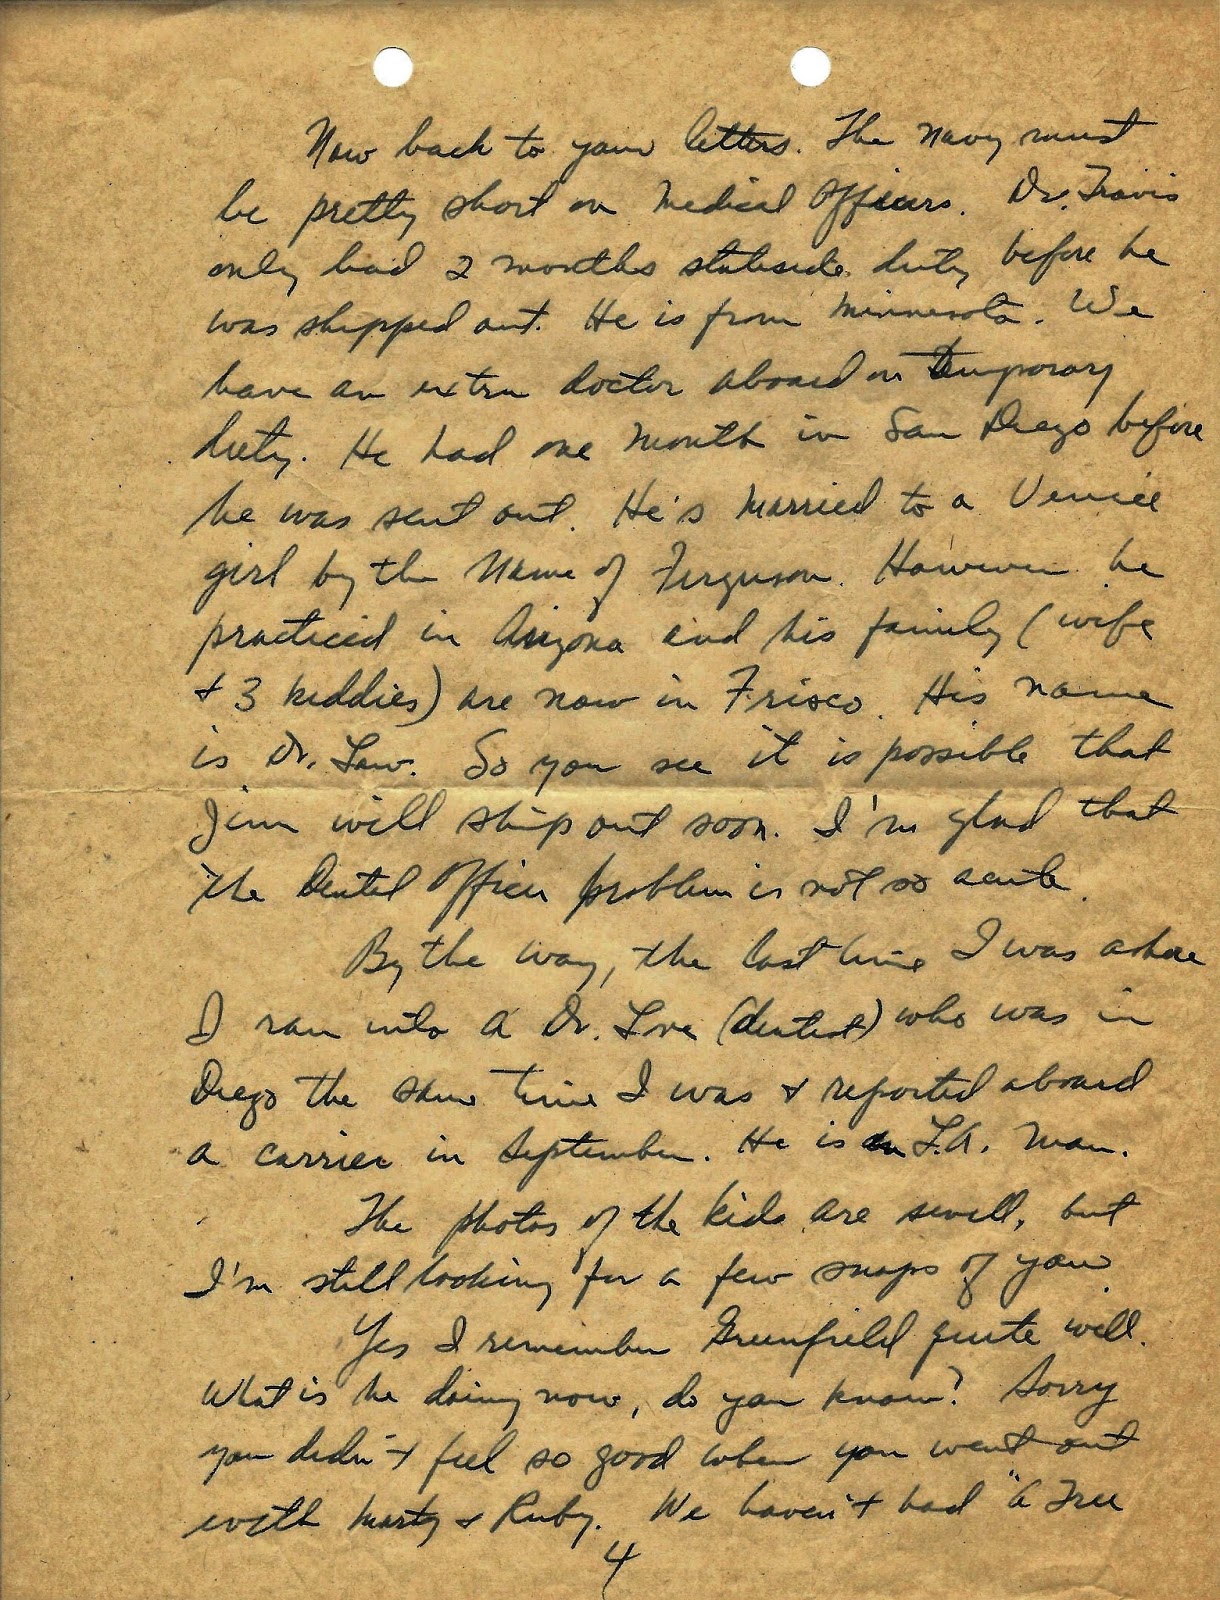 Now back to your letters. The Navy must
be pretty short on Medical Officers. Dr. Travis
only had 2 months stateside duty before he
was shipped out. He is from Minnesota. We
have an extra doctor aboard on Temporary
duty. He had one month in San Diego before
he was sent out. He's married to a Venice
girl by the Name of Ferguson. However he
practiced in Arizona and his family (wife
+ 3 kiddies) are now in Frisco. His name
is Dr. Law. So you see it is possible that
Jim will ship out soon. I'm glad that
the Dental Officer problem is not so acute.
By the way, the last time I was ashore
I ran into a Dr. Love (dentist) who was in
Diego the same time I was & reported aboard
a carrier in September. He is an L.A. man.
The photos of the kids are swell, but
I'm still looking for a few snaps of you
Yes I remember Greenfield quite well.
What is he doing now, do you know? Sorry
you didn't feel so good when you went out
with Marty & Ruby. We haven't had "A Tree
4